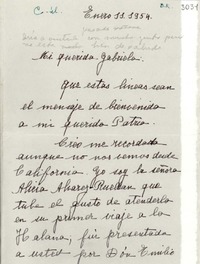 C. U.
D.E. 3031
Enero 11. 1954.
Mi querida Gabriela.
Que estas lineas sean
el mensaje de bienvenida
a mi querida Patria.
Creo me recordará
aunque no nos vemos desde
California yo soy la señora
Alicia Alvarez Ruellan que
tube el gusto de atenderla
en su primer viaje a la
Habana, fui presentada
a usted por Don Emilio